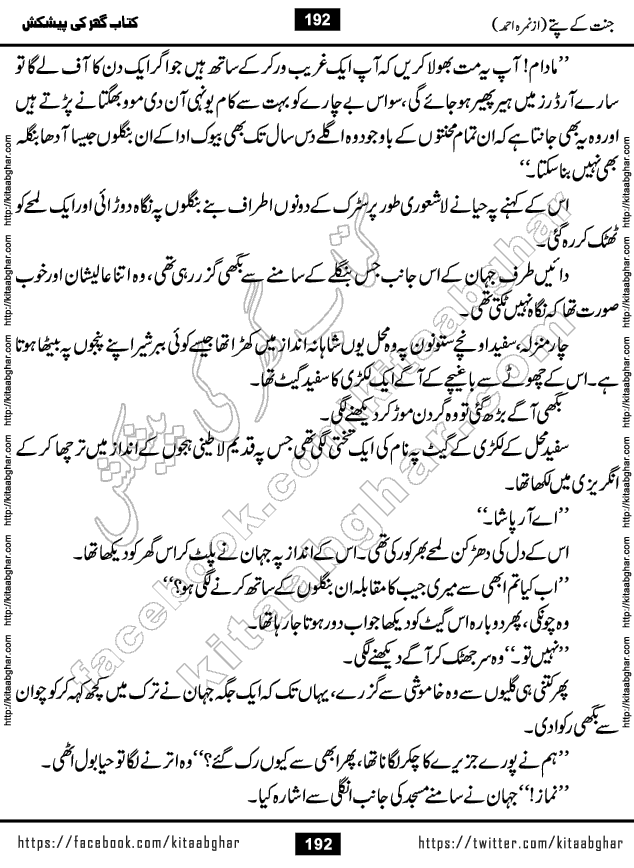 جنت کے پتے (از نمرہ احمد)
192
کتاب گھر کی پیشکش
’’مادام! آپ یہ مت بھولا کریں کہ آپ ایک غریب ورکر کے ساتھ ہیں جو اگر ایک دن کا آف لے گا تو
سارے آرڈرز میں ہیر پھیر ہو جائے گی، سو اس بے چارے کو بہت سے کام یونہی آن دی موو بھگتانے پڑتے ہیں
اور وہ یہ بھی جانتا ہے کہ ان تمام محنتوں کے باوجود وہ اگلے دس سال تک بھی بیوک ادا کے ان بنگلوں جیسا آدھا بنگلہ
بھی نہیں بنا سکتا۔‘‘
اس کے کہنے پہ حیا نے لاشعوری طور پر سڑک کے دونوں اطراف بنے بنگلوں پہ نگاہ دوڑائی اور ایک لمحے کو
ٹھٹک کر رہ گئی۔
دائیں طرف جہان کے اس جانب جس بنگلے کے سامنے سے بگھی گزر رہی تھی، وہ اتنا عالیشان اور خوب
صورت تھا کہ نگاہ نہیں ٹکتی تھی۔
چار منزلہ، سفید اونچے ستونوں پہ وہ محل یوں شاہانہ انداز میں کھڑا تھا جیسے کوئی ببر شیر اپنے پنجوں پہ بیٹھا ہوتا
ہے۔ اس کے چھوٹے سے باغیچے کے آگے ایک لکڑی کا سفید گیٹ تھا۔
بگھی آگے بڑھ گئی تو وہ گردن موڑ کر دیکھنے لگی۔
سفید محل کے لکڑی کے گیٹ پہ نام کی ایک تختی لگی تھی جس پہ قدیم لاطینی ہجوں کے انداز میں ترچھا کر کے
انگریزی میں لکھا تھا۔
’’اے آر پاشا۔‘‘
اس کے دل کی دھڑکن لمحے بھر کو رکی تھی۔ اس کے انداز پہ جہان نے پلٹ کر اس گھر کو دیکھا تھا۔
’’اب کیا تم ابھی سے میری جیب کا مقابلہ ان بنگلوں کے ساتھ کرنے لگی ہو؟‘‘
وہ چونکی، پھر دوبارہ اس گیٹ کو دیکھا جو اب دور ہوتا جا رہا تھا۔
’’نہیں تو۔‘‘ وہ سر جھٹک کر آگے دیکھنے لگی۔
پھر کتنی ہی گلیوں سے وہ خاموشی سے گزرے، یہاں تک کہ ایک جگہ جہان نے ترک میں کچھ کہہ کر کوچوان
سے بگھی رکوا دی۔
’’ہم نے پورے جزیرے کا چکر لگانا تھا، پھر ابھی سے کیوں رک گئے؟‘‘ وہ اترنے لگا تو حیا بول اٹھی۔
’’نماز!‘‘ جہان نے سامنے مسجد کی جانب انگلی سے اشارہ کیا۔
کتاب گھر کی پیشکش
kitaabghar.com
facebook.com/kitaabghar
http://kitaabghar.com http://kitaabghar.com http://kitaabghar.com http://kitaabghar.com http://kitaabghar.com http://kitaabghar.com
http://kitaabghar.com http://kitaabghar.com http://kitaabghar.com http://kitaabghar.com http://kitaabghar.com http://kitaabghar.com
https://facebook.com/kitaabghar
192
https://twitter.com/kitaabghar